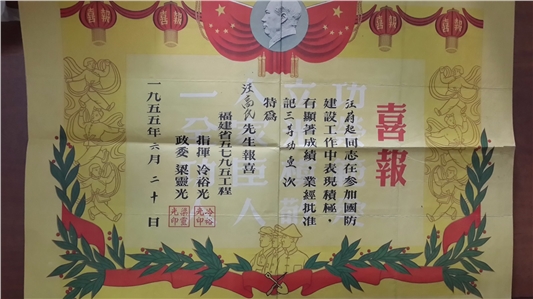 喜報
喜報
喜報
同志在參加國防
建設工作中表現積極，
有顯著成績，業經批准
記三等功壹次
特為
先生報喜
福建省五七九五工程
指揮 冷裕光
政委 梁靈光
冷裕光印
梁靈光印
一九五五年六月二十日